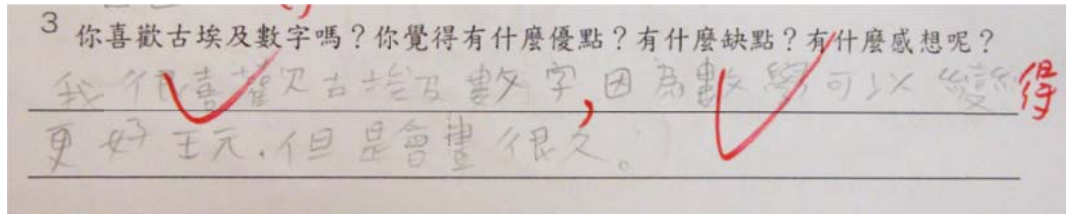 3 你喜歡古埃及數字嗎？你覺得有什麼優點？有什麼缺點？有什麼感想呢？
我很喜歡古埃及數字，因為數學可以變得
更好玩．但是會畫很久。